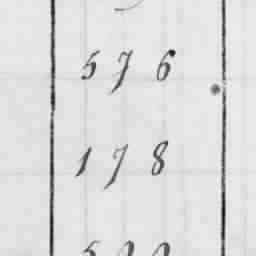 576
178